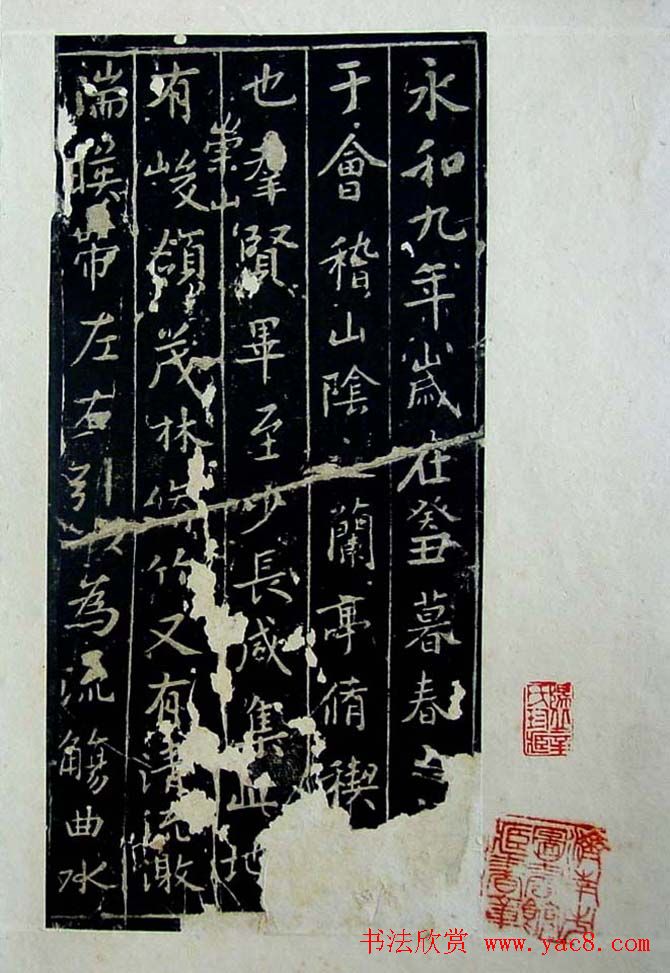 永和九年歲在癸丑暮春之
于會稽山陰之蘭亭脩禊
也羣賢畢至少長咸集此地
崇山
有峻領茂林脩竹又有清流激
湍暎帶左右引以為流觴曲水
书法欣赏 www.yac8.com